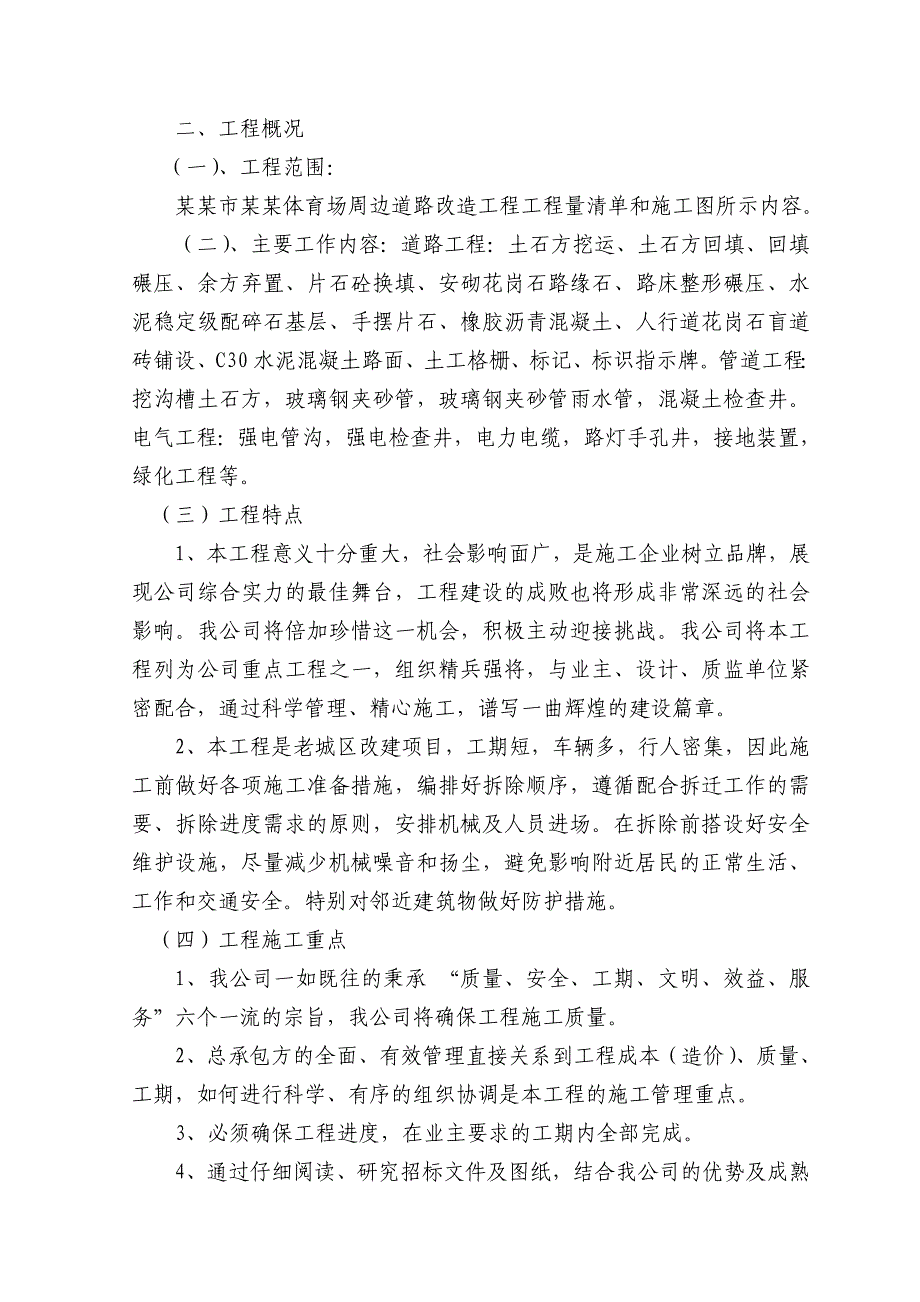 二、工程概况
（一）、工程范围：
某某市某某体育场周边道路改造工程工程量清单和施工图所示内容。
（二）、主要工作内容：道路工程：土石方挖运、土石方回填、回填
碾压、余方弃置、片石砼换填、安砌花岗石路缘石、路床整形碾压、水
泥稳定级配碎石基层、手摆片石、橡胶沥青混凝土、人行道花岗石盲道
砖铺设、C30 水泥混凝土路面、土工格栅、标记、标识指示牌。管道工程：
挖沟槽土石方，玻璃钢夹砂管，玻璃钢夹砂管雨水管，混凝土检查井。
电气工程：强电管沟，强电检查井，电力电缆，路灯手孔井，接地装置，
绿化工程等。
（三）工程特点
1、本工程意义十分重大，社会影响面广，是施工企业树立品牌，展
现公司综合实力的最佳舞台，工程建设的成败也将形成非常深远的社会
影响。我公司将倍加珍惜这一机会，积极主动迎接挑战。我公司将本工
程列为公司重点工程之一，组织精兵强将，与业主、设计、质监单位紧
密配合，通过科学管理、精心施工，谱写一曲辉煌的建设篇章。
2、本工程是老城区改建项目，工期短，车辆多，行人密集，因此施
工前做好各项施工准备措施，编排好拆除顺序，遵循配合拆迁工作的需
要、拆除进度需求的原则，安排机械及人员进场。在拆除前搭设好安全
维护设施，尽量减少机械噪音和扬尘，避免影响附近居民的正常生活、
工作和交通安全。特别对邻近建筑物做好防护措施。
（四）工程施工重点
1、我公司一如既往的秉承 “质量、安全、工期、文明、效益、服
务”六个一流的宗旨，我公司将确保工程施工质量。
2、总承包方的全面、有效管理直接关系到工程成本（造价）、质量、
工期，如何进行科学、有序的组织协调是本工程的施工管理重点。
3、必须确保工程进度，在业主要求的工期内全部完成。
4、通过仔细阅读、研究招标文件及图纸，结合我公司的优势及成熟